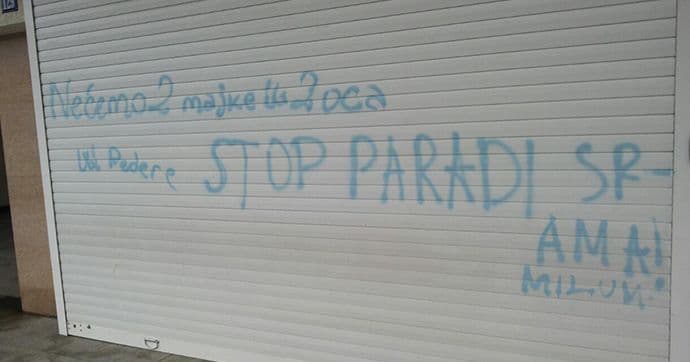 Nećemo 2 majke ili 2 oca
Ubi Pedere STOP PARADI SR-
AMA!
MILUN!